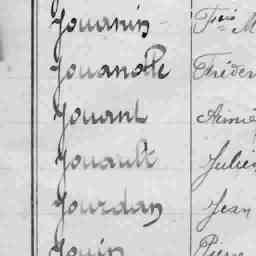 Jouanin Fçois M
Jouanole Fréder
Jouant Aimé
Jouault Julien
Jourdan Jean
Jouin Pierre